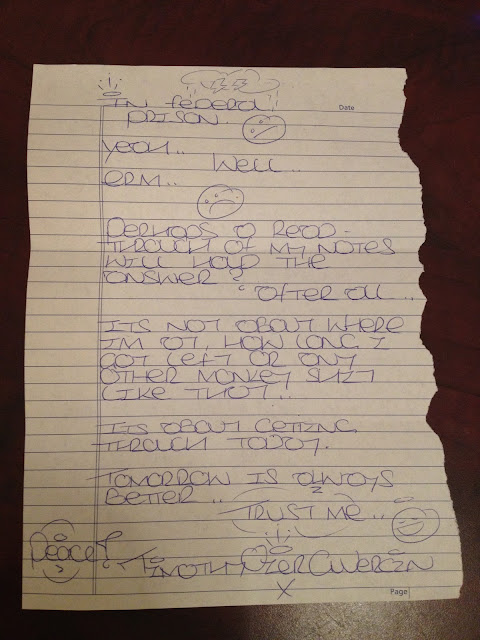 IN FEDERAL
PRISON.
Date
YEAH.. WELL..
ERM..
PERHAPS A READ-
THROUGH OF MY NOTES
WILL HOLD THE
ANSWER?
AFTER ALL...
ITS NOT ABOUT WHERE
I'M AT, HOW LONG I
GOT LEFT OR ANY
OTHER MONKEY SHIT
LIKE THAT...
ITS ABOUT GETTING
THROUGH TODAY.
TOMORROW IS ALWAYS
BETTER..
TRUST ME..
PEACE!
TIMOTHY
X
Page